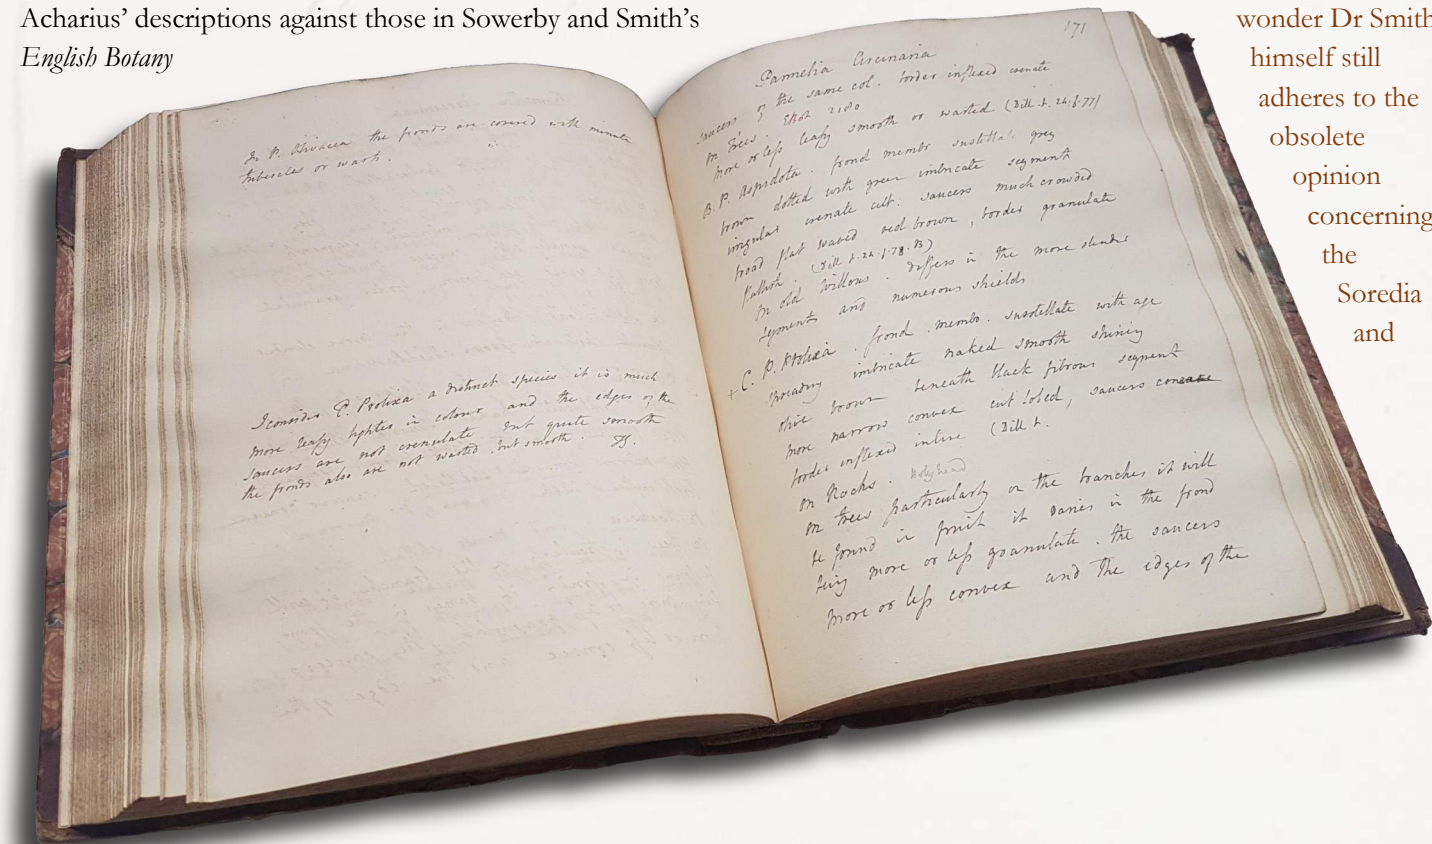 Acharius’ descriptions against those in Sowerby and Smith’s
English Botany
In P. Olivacea the fronds are covered with minute
tubercles or warts.
I consider P. Prolixa a distinct species it is much
more leafy lighter in colour and the edges of the
saucers are not crenulate but quite smooth
the fronds also are not warted but smooth.
171
Parmelia Circinaria
saucers of the same col. border inflexed crenate
on Trees. EBot 2180
more or less leafy smooth or warted (Dill. t. 24. f. 77)
B. P. Aspidota. frond membr substellate grey
brown dotted with green imbricate segment
irregular crenate cut: saucers much crowded
broad flat waved red brown, border granulate
(Dill t. 24. f. 78. B)
on old Willows. differs in the more slender
segments and numerous shields
+ C. P. Prolixa. frond. membr. substellate with age
spreading imbricate naked smooth shining
olive brown beneath black fibrous segment
more narrow convex cut lobed, saucers concave
border inflexed entire (Dill t.
on Rocks. Holyhead
on trees particularly on the branches it will
be found in fruit it varies in the frond
being more or less granulate. the saucers
more or less convex and the edges of the
wonder Dr Smith
himself still
adheres to the
obsolete
opinion
concerning
the
Soredia
and